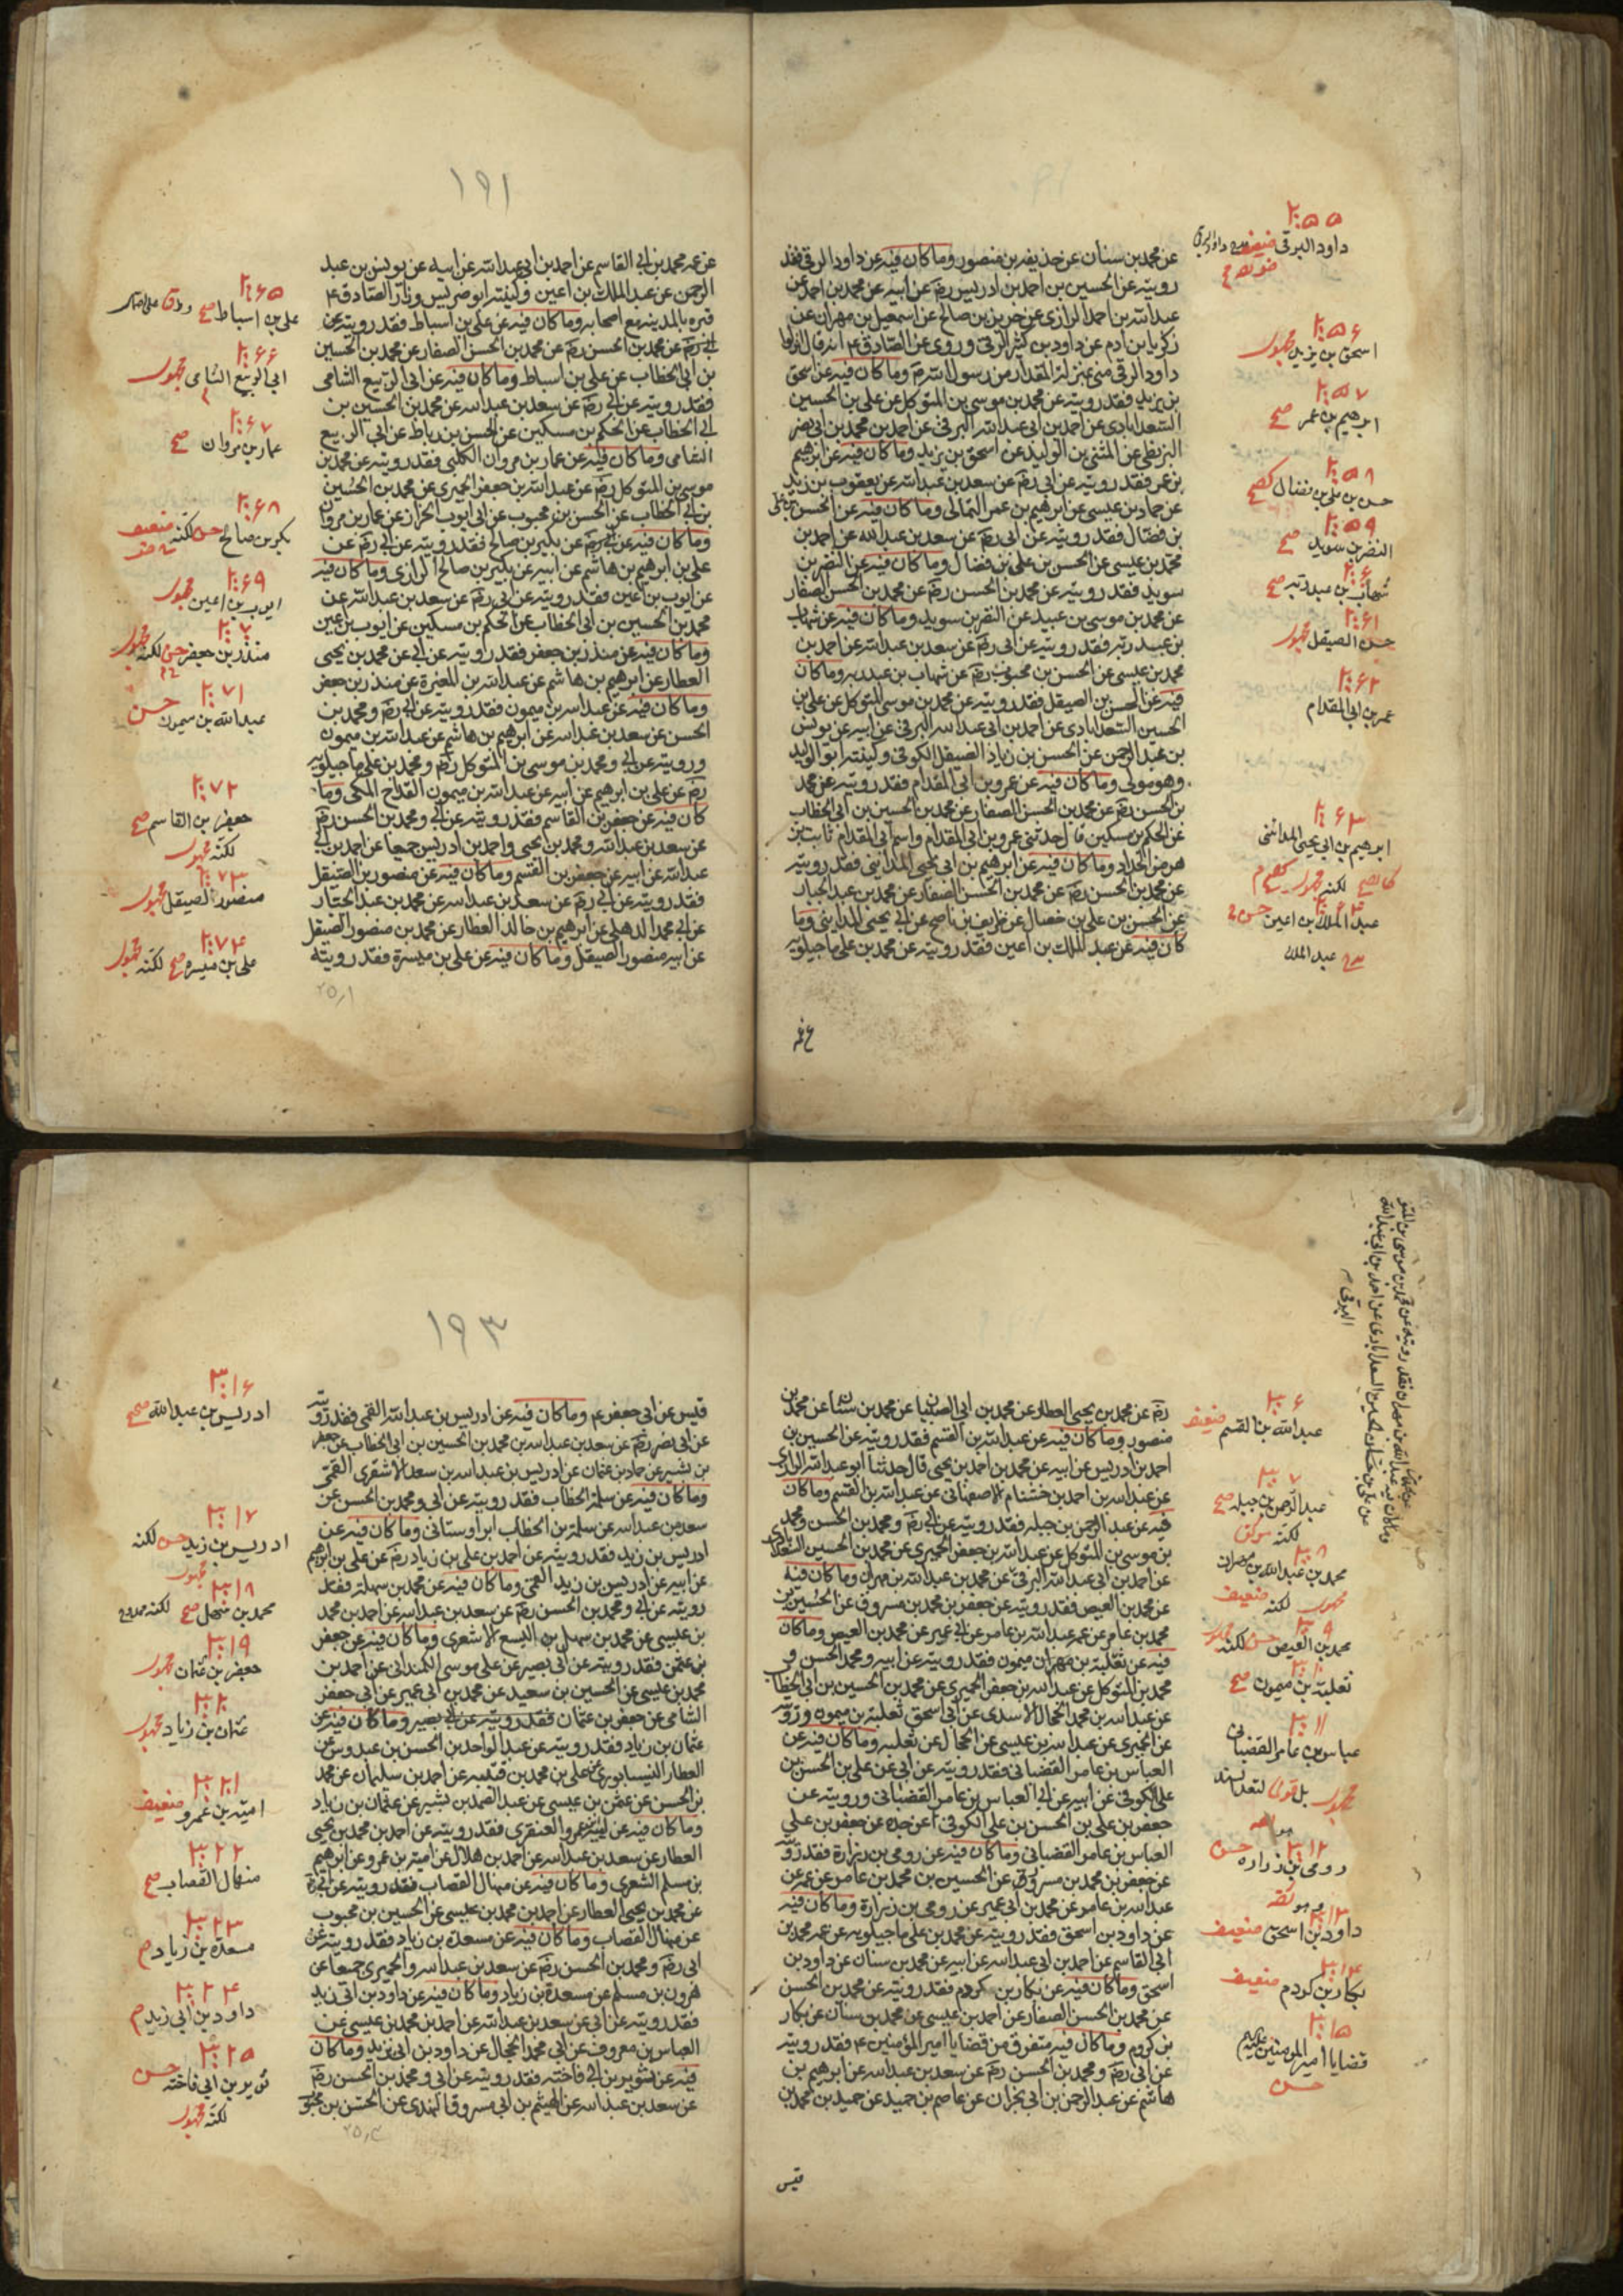 عن محمد بن سنان عن حذيفة بن منصور وما كان فيه عن داود الرقي فقد
رويته عن الحسين بن احمد بن ادريس رض عن ابيه عن محمد بن احمد عن
عبدالله بن احمد الرازي عن حريز بن صالح عن اسمعيل بن مهران عن
زكريا بن ادم عن داود بن كثير الرقي وروى عن الصادق ع انه قال انزلوا
داود الرقي مني بمنزلة المقداد من رسول الله ص وما كان فيه عن اسحق
بن يزيد فقد رويته عن محمد بن موسى بن المتوكل عن علي بن الحسين
السعدابادي عن احمد بن ابي عبدالله البرقي عن احمد بن محمد بن ابي نصر
البزنطي عن المثنى بن الوليد عن اسحق بن يزيد وما كان فيه عن ابرهيم
بن عمر فقد رويته عن ابي رض عن سعد بن عبدالله عن يعقوب بن يزيد
عن حماد بن عيسى عن ابرهيم بن عمر اليماني وما كان فيه عن الحسن بن علي
بن فضال فقد رويته عن ابي رض عن سعد بن عبدالله عن احمد بن
محمد بن عيسى عن الحسن بن علي بن فضال وما كان فيه عن النضر بن
سويد فقد رويته عن محمد بن الحسن رض عن محمد بن الحسن الصفار
عن محمد بن موسى بن عبيد عن النضر بن سويد وما كان فيه عن شهاب
بن عبد ربه فقد رويته عن ابي رض عن سعد بن عبدالله عن احمد بن
محمد بن عيسى عن الحسن بن محبوب عن شهاب بن عبد ربه وما كان
فيه عن الحسن بن الصيقل فقد رويته عن محمد بن موسى المتوكل عن علي بن
الحسين السعدابادي عن احمد بن ابي عبدالله البرقي عن ابيه عن يونس
بن عبد الرحمن عن الحسن بن زياد الصيقل الكوفي وكنيته ابو الوليد
وهو مولى وما كان فيه عن عمرو بن ابي المقدام فقد رويته عن محمد
بن الحسن رض عن محمد بن الحسن الصفار عن محمد بن الحسين بن ابي الخطاب
عن الحكم بن مسكين قال حدثني عمرو بن ابي المقدام واسم ابي المقدام ثابت بن
هرمز الحداد وما كان فيه عن ابرهيم بن ابي يحيى المدايني فقد رويته
عن محمد بن الحسن رض عن محمد بن الحسن الصفار عن محمد بن عبد الجبار
عن الحسن بن علي بن فضال عن ظريف بن ناصح عن ابي يحيى المدايني وما
كان فيه عن عبد الملك بن اعين فقد رويته عن محمد بن علي ماجيلويه
٢٠٥٥
داود البرقي ضعيف
٢٠٥٦
اسحق بن يزيد مجهول
٢٠٥٧
ابرهيم بن عمر صح
٢٠٥٨
حسن بن علي بن فضال كصح
٢٠٥٩
النضر بن سويد صح
شهاب بن عبد ربه صح
٢٠٦١
حسن الصيقل مجهول
٢٠٦٢
عمر بن ابي المقدام
٢٠٦٣
ابرهيم بن ابي يحيى المدائني
لكنه مجهول
عبد الملك بن اعين حسن
عبد الملك
١٩١
عن عمه محمد بن ابي القاسم عن احمد بن ابي عبدالله عن ابيه عن يونس بن عبد
الرحمن عن عبد الملك بن اعين وكنيته ابو ضريس وزار الصادق ع
قبره بالمدينة مع اصحابه وما كان فيه عن علي بن اسباط فقد رويته عن
ابي رض عن محمد بن الحسن رض عن محمد بن الحسن الصفار عن محمد بن الحسين
بن ابي الخطاب عن علي بن اسباط وما كان فيه عن ابي الربيع الشامي
فقد رويته عن ابي رض عن سعد بن عبدالله عن محمد بن الحسين بن
ابي الخطاب عن الحكم بن مسكين عن الحسن بن رباط عن ابي الربيع
الشامي وما كان فيه عن عمار بن مروان الكلبي فقد رويته عن محمد بن
موسى بن المتوكل رض عن عبدالله بن جعفر الحميري عن محمد بن الحسين
بن ابي الخطاب عن الحسن بن محبوب عن ابي ايوب الخزاز عن عمار بن مروان
وما كان فيه عن بكر بن صالح فقد رويته عن ابي رض عن
علي بن ابرهيم بن هاشم عن ابيه عن بكير بن صالح الرازي وما كان فيه
عن ايوب بن اعين فقد رويته عن ابي رض عن سعد بن عبدالله عن
محمد بن الحسين بن ابي الخطاب عن الحكم بن مسكين عن ايوب بن اعين
وما كان فيه عن منذر بن جعفر فقد رويته عن ابي عن محمد بن يحيى
العطار عن ابرهيم بن هاشم عن عبدالله بن المغيرة عن منذر بن جعفر
وما كان فيه عن عبدالله بن ميمون فقد رويته عن ابي رض ومحمد بن
الحسن عن سعد بن عبدالله عن ابرهيم بن هاشم عن عبدالله بن ميمون
ورويته عن ابي ومحمد بن موسى بن المتوكل رض ومحمد بن علي ماجيلويه
رض عن علي بن ابرهيم عن ابيه عن عبدالله بن ميمون القداح المكي وما
كان فيه عن جعفر بن القاسم فقد رويته عن ابي ومحمد بن الحسن رض
عن سعد بن عبدالله ومحمد بن يحيى واحمد بن ادريس جميعا عن احمد بن ابي
عبدالله عن ابيه عن جعفر بن القسم وما كان فيه عن منصور بن الصيقل
فقد رويته عن ابي رض عن سعد بن عبدالله عن محمد بن عبد الجبار
عن ابي محمد الدهلي عن ابرهيم بن خالد العطار عن محمد بن منصور الصيقل
عن ابيه منصور الصيقل وما كان فيه عن علي بن ميسرة فقد رويته
٢٠٦٥
علي بن اسباط صح
٢٠٦٦
ابي الربيع الشامي مجهول
٢٠٦٧
عمار بن مروان صح
٢٠٦٨
بكر بن صالح حسن لكنه ضعيف
٢٠٦٩
ايوب بن اعين مجهول
منذر بن جعفر حسن لكنه مجهول
٢٠٧١
عبدالله بن ميمون حسن
٢٠٧٢
جعفر بن القاسم صح
لكنه مجهول
٢٠٧٣
منصور الصيقل مجهول
٢٠٧٤
علي بن ميسره صح لكنه مجهول
رض عن محمد بن يحيى العطار عن محمد بن ابي الصهبان عن محمد بن سنان عن محمد بن
منصور وما كان فيه عن عبدالله بن القسم فقد رويته عن الحسين بن
احمد بن ادريس عن ابيه عن محمد بن احمد بن يحيى قال حدثنا ابو عبدالله الرازي
عن عبدالله بن احمد بن خشنام الاصفهاني عن عبدالله بن القسم وما كان
فيه عن عبد الرحمن بن جبله فقد رويته عن ابي رض ومحمد بن الحسن ومحمد
بن موسى بن المتوكل عن عبدالله بن جعفر الحميري عن محمد بن الحسين
عن احمد بن ابي عبدالله البرقي عن محمد بن عبدالله بن مهران وما كان فيه
عن محمد بن العيص فقد رويته عن جعفر بن محمد بن مسروق عن الحسين بن
محمد بن عامر عن عمه عبدالله بن عامر عن ابن ابي عمير عن محمد بن العيص وما كان
فيه عن ثعلبة بن ميمون فقد رويته عن ابيه ومحمد الحسن و
محمد بن المتوكل عن عبدالله بن جعفر الحميري عن محمد بن الحسين بن ابي الخطاب
عن عبدالله بن محمد الحجال الاسدي عن ابي اسحق ثعلبة بن ميمون ورويته
عن الحميري عن عبدالله بن عيسى عن الحجال عن ثعلبه وما كان فيه عن
العباس بن عامر القصباني فقد رويته عن ابي عن علي بن الحسن بن
علي الكوفي عن ابيه عن العباس بن عامر القصباني ورويته عن
جعفر بن علي بن الحسن بن علي الكوفي عن جده عن جعفر بن علي
العباس بن عامر القصباني وما كان فيه عن رومي بن زرارة فقد رويته
عن جعفر بن محمد بن مسروق عن الحسين بن محمد بن عامر عن عمه
عبدالله بن عامر عن محمد بن ابي عمير عن رومي بن زرارة وما كان فيه
عن داود بن اسحق فقد رويته عن محمد بن علي ماجيلويه عن عمه محمد بن
ابي القاسم عن احمد بن ابي عبدالله عن ابيه عن محمد بن سنان عن داود بن
اسحق وما كان فيه عن بكار بن كردم فقد رويته عن محمد بن الحسن
عن محمد بن الحسن الصفار عن احمد بن عيسى عن محمد بن سنان عن بكار
بن كردم وما كان فيه متفرق من قضايا امير المؤمنين ع فقد رويته
عن ابي رض ومحمد بن الحسن رض عن سعد بن عبدالله عن ابرهيم بن
هاشم عن عبد الرحمن بن ابي نجران عن عاصم بن حميد عن محمد بن
قيس
عبدالله بن القسم ضعيف
عبد الرحمن بن جبله صح
محمد بن عبدالله بن مهران
لكنه ضعيف
محمد بن العيص حسن لكنه مجهول
ثعلبة بن ميمون صح
عباس بن عامر القصباني
رومي بن زراره حسن
داود بن اسحق ضعيف
بكار بن كردم ضعيف
قضايا امير المؤمنين
حسن
١٩٣
قيس عن ابي جعفر ع وما كان فيه عن ادريس بن عبدالله القمي فقد رويته
عن ابي رض عن سعد بن عبدالله بن محمد بن الحسين بن ابي الخطاب عن جعفر
بن بشير عن حماد بن عثمان عن ادريس بن عبدالله بن سعد الاشعري القمي
وما كان فيه عن سلمة الخطاب فقد رويته عن ابي ومحمد بن الحسن عن
سعد بن عبدالله عن سلمة بن الخطاب ابراوستاني وما كان فيه عن
ادريس بن زيد فقد رويته عن احمد بن علي بن زياد رض عن علي بن ابرهيم
عن ابيه عن ادريس بن زيد القمي وما كان فيه عن محمد بن سهل فقد
رويته عن ابي ومحمد بن الحسن رض عن سعد بن عبدالله عن احمد بن محمد
بن عيسى عن محمد بن سهل بن اليسع الاشعري وما كان فيه عن جعفر
بن عثمن فقد رويته عن ابي بصير عن علي موسى الكمنداني عن احمد بن
محمد بن عيسى عن الحسين بن سعيد عن محمد بن ابي عمير عن ابي جعفر
الشامي عن جعفر بن عثمان فقد رويته عن ابي بصير وما كان فيه عن
عثمان بن زياد فقد رويته عن عبد الواحد بن الحسن بن عبدوس عن
العطار النيسابوري عن علي بن محمد بن قتيبه عن احمد بن سليمان عن محمد
بن الحسن عن عثمن بن عيسى عن عبد الصمد بن بشير عن عثمان بن زياد
وما كان فيه عن امية بن عمرو العنقري فقد رويته عن احمد بن محمد بن يحيى
العطار عن سعد بن عبدالله عن احمد بن هلال عن امية بن عمرو عن ابرهيم
بن مسلم الشعري وما كان فيه عن منهال القصاب فقد رويته عن
عن محمد بن يحيى العطار عن احمد بن محمد بن عيسى عن الحسين بن محبوب
عن منهال القصاب وما كان فيه عن مسعدة بن زياد فقد رويته عن
ابي رض ومحمد بن الحسن رض عن سعد بن عبدالله والحميري جميعا عن
هرون بن مسلم عن مسعدة بن زياد وما كان فيه عن داود بن ابي زيد
فقد رويته عن ابي عن سعد بن عبدالله عن احمد بن محمد بن عيسى عن
العباس بن معروف عن ابي محمد الحجال عن داود بن ابي يزيد وما كان
فيه عن ثوير بن ابي فاخته فقد رويته عن ابي ومحمد بن الحسن رض
عن سعد بن عبدالله عن الهيثم بن ابي مسروق النهدي عن الحسن بن محبو
٣٠١٦
ادريس بن عبدالله صحيح
٣٠١٧
ادريس بن زيد حسن لكنه
مجهول
٣٠١٨
محمد بن سهل صح لكنه ممدوح
٣٠١٩
جعفر بن عثمان مجهول
عثمان بن زياد مجهول
٣٠٢١
امية بن عمرو ضعيف
٣٠٢٢
منهال القصاب صح
٣٠٢٣
مسعدة بن زياد م
٣٠٢٤
داود بن ابي زيد م
٣٠٢٥
ثوير بن ابي فاخته حسن
لكنه مجهول